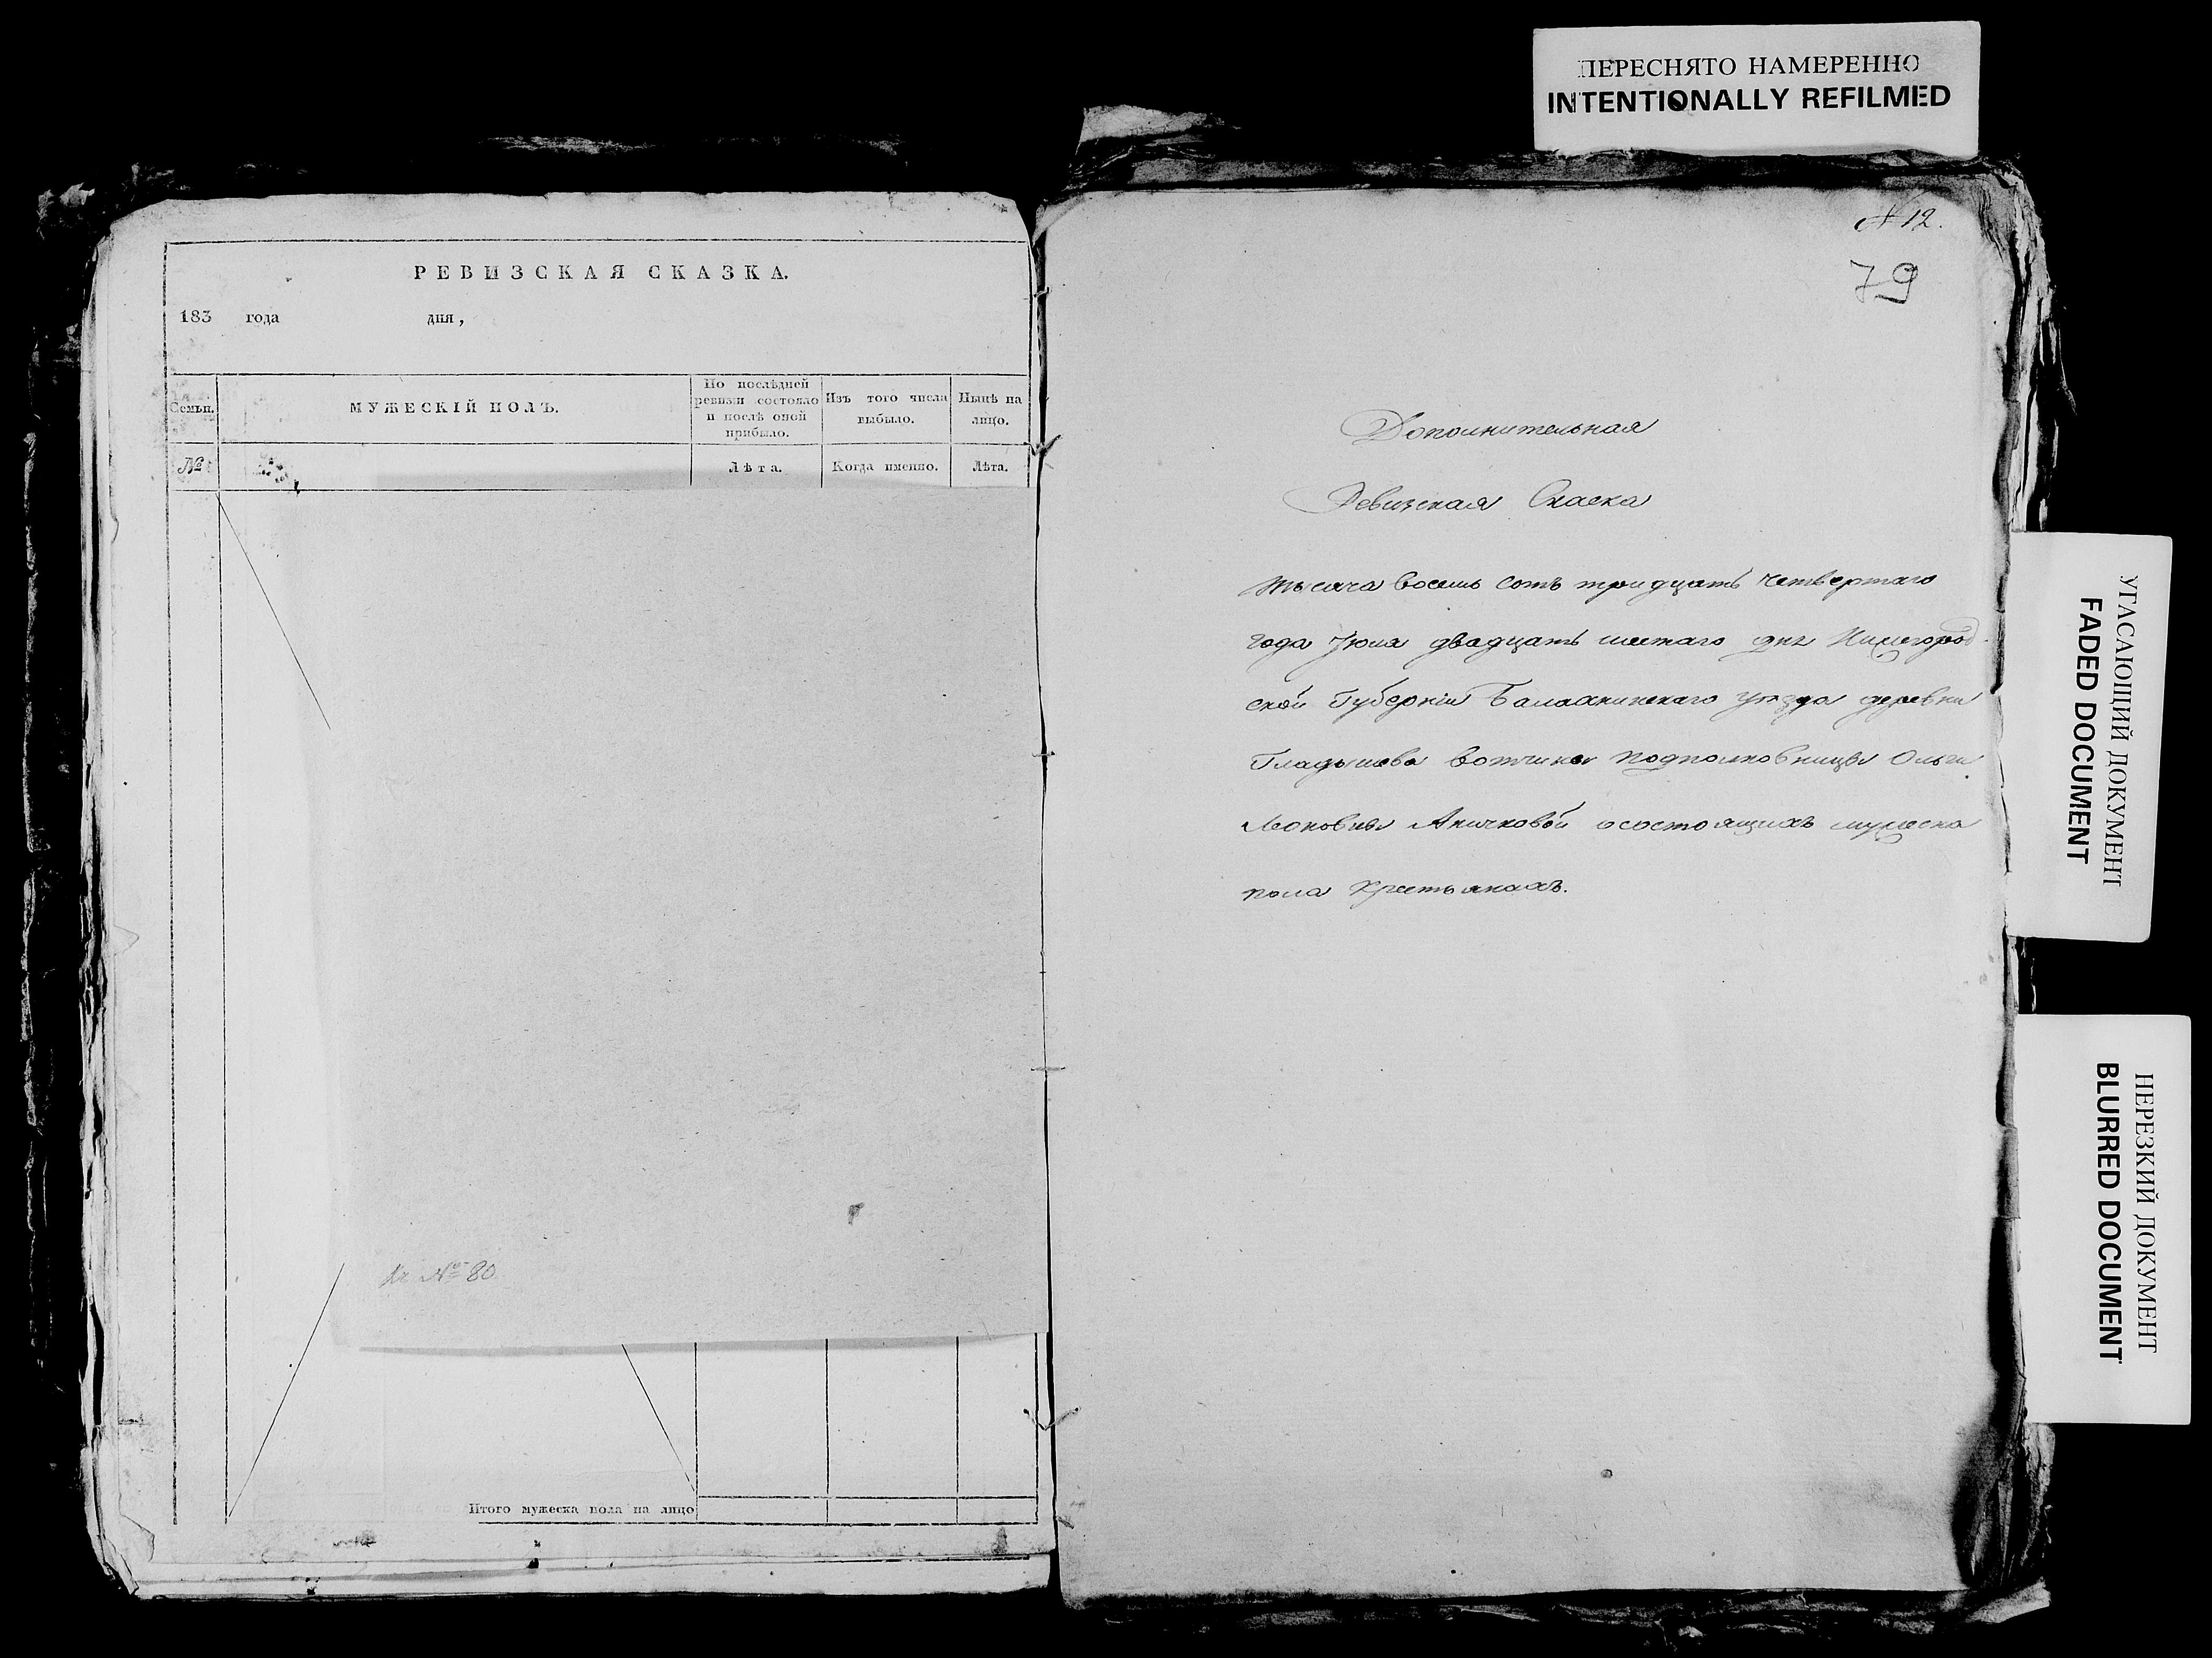 ПЕРЕСНЯТО НАМЕРЕННО
INTENTIONALLY REFILMED
РЕВИЗСКАЯ СКАЗКА.
183 года дня,
Семьи.
МУЖЕСКІЙ ПОЛЪ.
По послѣдней
ревизіи состояло
и послѣ оной
прибыло.
Изъ того числа
выбыло.
Нынѣ на
лицо.
№
Лѣта.
Когда именно.
Лѣта.
№ 80
Итого мужеска пола на лицо
№ 12.
79
Дополнительная
Ревизская Скаска
Тысяча восемь сотъ тридцать четвертаго
года Іюля двадцать шестаго дня Нижегород-
ской Губерніи Балахнинскаго уѣзда деревни
Гладышева вотчины подполковницы Ольги
Леоновны Аничковой осостоящихъ мужеска
пола крестьянахъ.
УГАСАЮЩИЙ ДОКУМЕНТ
FADED DOCUMENT
НЕРЕЗКИЙ ДОКУМЕНТ
BLURRED DOCUMENT